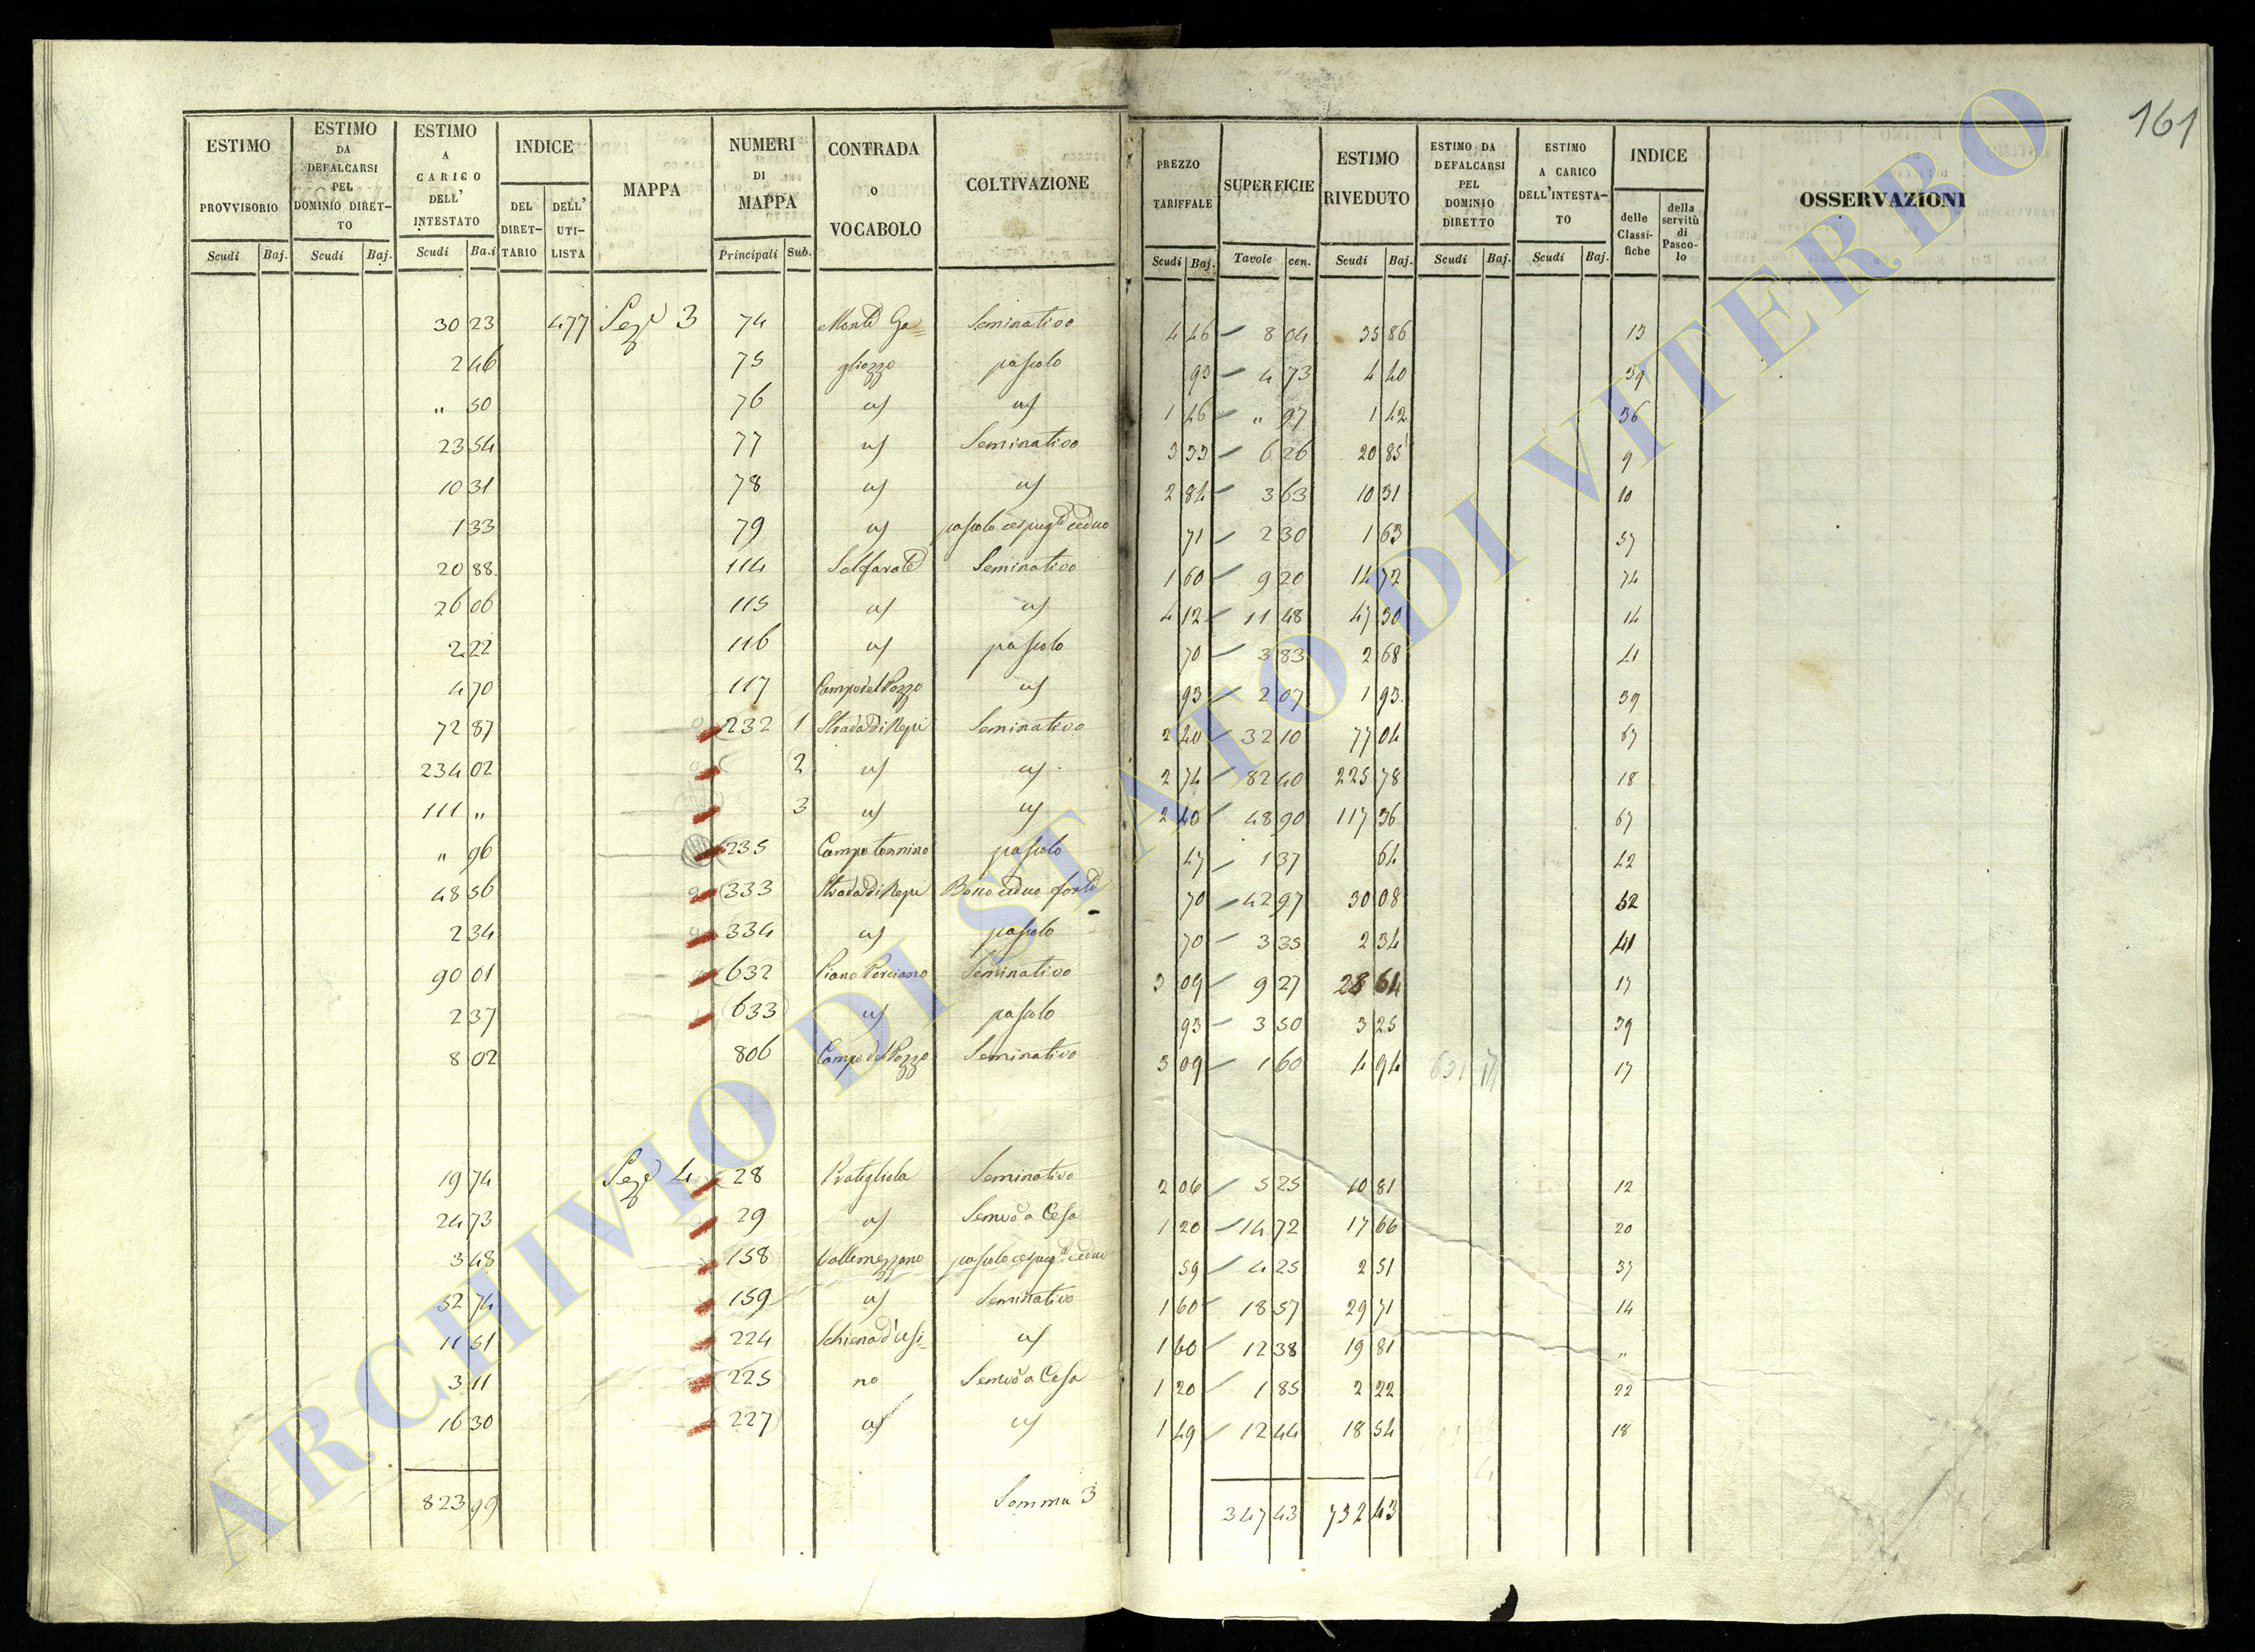 161
ESTIMO PROVVISORIO | ESTIMO DA DEFALCARSI PEL DOMINIO DIRET-TO | ESTIMO A CARICO DELL' INTESTATO | INDICE | MAPPA | NUMERI DI MAPPA | CONTRADA o VOCABOLO | COLTIVAZIONE | PREZZO TARIFFALE | SUPERFICIE | ESTIMO RIVEDUTO | ESTIMO DA DEFALCARSI PEL DOMINIO DIRETTO | ESTIMO A CARICO DELL'INTESTA-TO | INDICE | OSSERVAZIONI
Scudi | Baj. | Scudi | Baj. | Scudi | Ba.i | DEL DIRET-TARIO | DELL' UTI-LISTA | Principali | Sub. | Scudi | Baj. | Tavole | cen. | Scudi | Baj. | Scudi | Baj. | Scudi | Baj. | delle Classi-fiche | della servitù di Pasco-lo
30 23 477 Sez.e 3 74 Monte Ga= Seminativo 4 46 8 04 35 86 13
2 46 75 gliozzo pascolo 93 4 73 4 40 39
" 50 76 u/ u/ 1 46 " 97 1 42 36
23 54 77 u/ Seminativo 3 33 6 26 20 85 9
10 31 78 u/ u/ 2 84 3 63 10 31 10
1 33 79 u/ pascolo cespugl.e ceduo 71 2 30 1 63 37
20 88 114 Solfarate Seminativo 1 60 9 20 14 72 74
26 06 115 u/ u/ 4 12 11 48 47 30 14
2 22 116 u/ pascolo 70 3 83 2 68 41
4 70 117 Campo del Pozzo u/ 93 2 07 1 93 39
72 87 232 1 Strada di Nepi Seminativo 2 40 32 10 77 04 67
234 02 2 u/ u/ 2 74 82 40 225 78 18
111 " 3 u/ u/ 2 40 48 90 117 36 67
" 96 235 Campo tonnino pascolo 47 1 37 64 42
48 56 333 Strada di Nepi Bosco ceduo forte 70 42 97 30 08 52
2 34 334 u/ pascolo 70 3 35 2 34 41
90 01 632 Piano Porciano Seminativo 3 09 9 27 28 64 17
2 37 633 u/ pascolo 93 3 50 3 25 39
8 02 806 Campo del Pozzo Seminativo 3 09 1 60 4 94 17
19 74 Sez.e 4 28 Pratigliola Seminativo 2 06 5 25 10 81 12
24 73 29 u/ Semvo a Cesa 1 20 14 72 17 66 20
3 48 158 Vallemezzano pascolo cespug.e ceduo 59 4 25 2 51 37
52 74 159 u/ Seminativo 1 60 18 57 29 71 14
11 51 224 Schiena d'Asi= u/ 1 60 12 38 19 81 "
3 11 225 no Semvo a Cesa 1 20 1 85 2 22 22
16 30 227 u/ u/ 1 49 12 44 18 54 18
823 99 Somma 3 347 43 732 43
ARCHIVIO DI STATO DI VITERBO